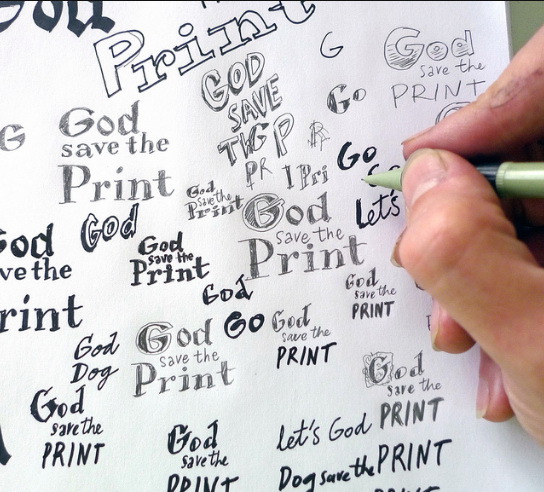 God
Print
G
G
God
save the
PRINT
Go
GOD
SAVE
THE
P
PR
I Pri
God
save the
Print
G
God
save the
Print
Go
Let's
God
save the
Print
God
God
save the
Print
God
ve the
rint
God
God
save the
PRINT
God
Dog
God
save the
Print
Go
God
save the
PRINT
God
save the
PRINT
God
save the
PRINT
God
save the
PRINT
let's God
Dog save the PRINT